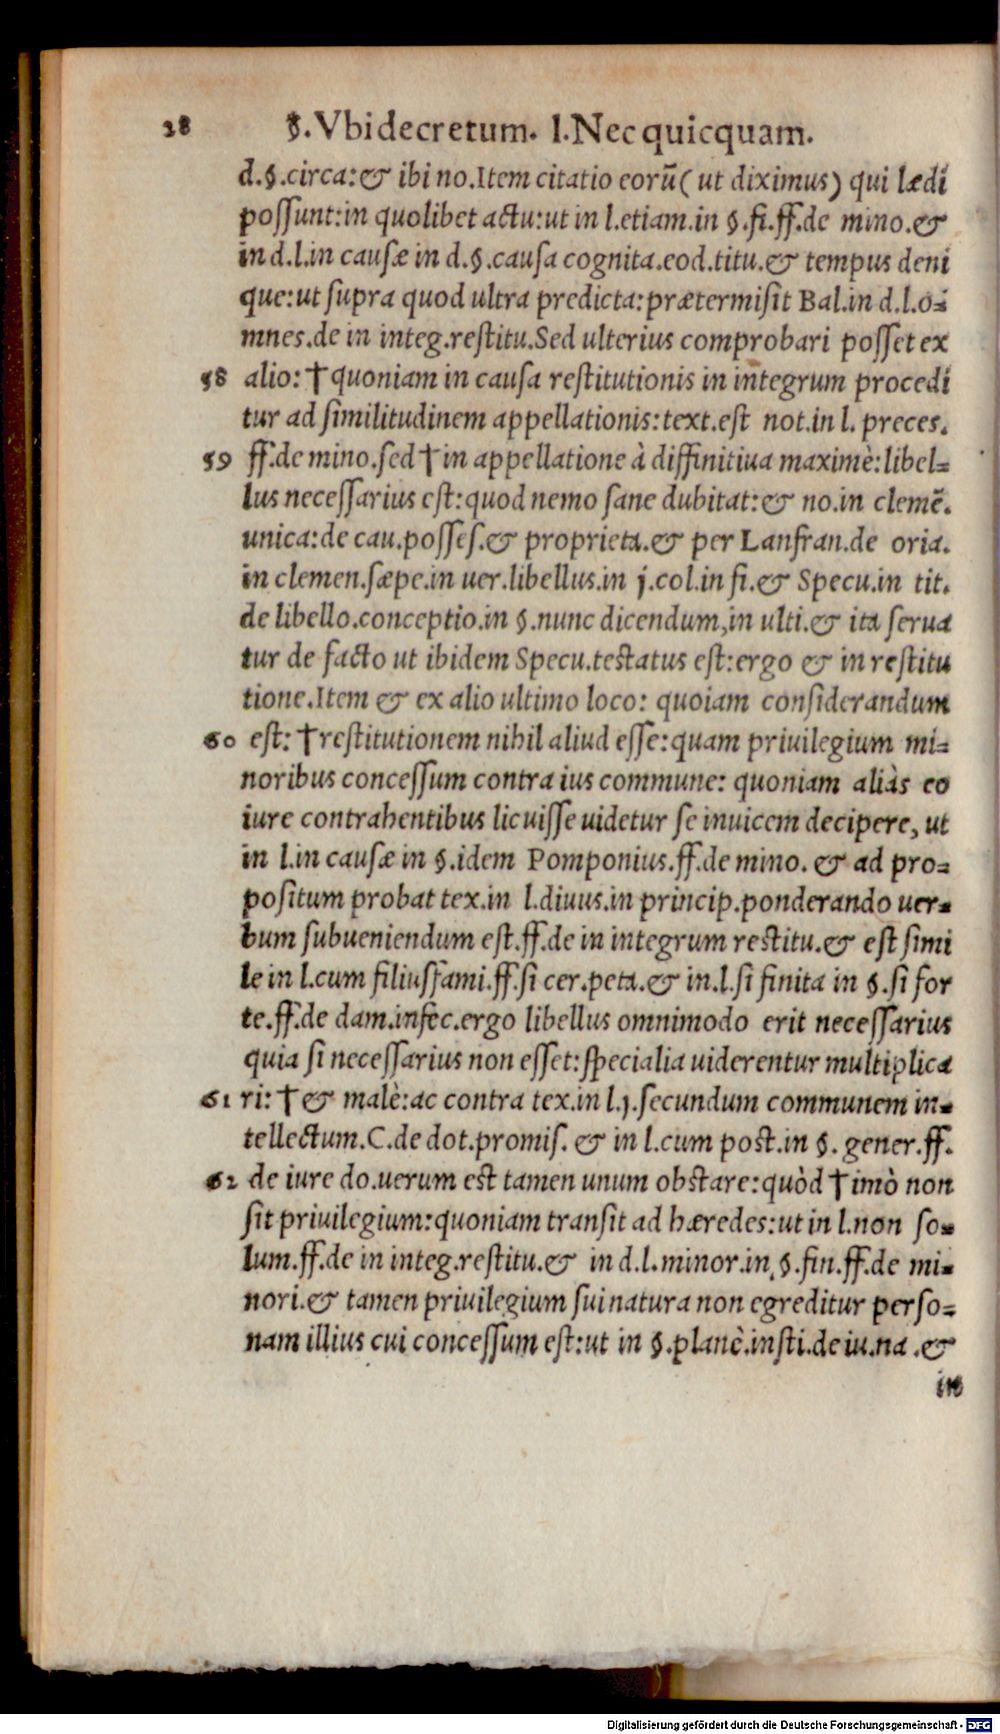 28 §.Vbi decretum. l.Nec quicquam.
d.§.circa:& ibi no.Item citatio eorũ( ut diximus) qui lædi
possunt:in quolibet actu:ut in l.etiam.in §.fi.ff.de mino.&
in d.l.in causæ in d.§.causa cognita.eod.titu.& tempus deni
que:ut supra quod ultra predicta:prætermisit Bal.in d.l.o-
mnes.de in integ.restitu.Sed ulterius comprobari posset ex
58 alio: †quoniam in causa restitutionis in integrum procedi
tur ad similitudinem appellationis:text.est not.in l. preces.
59 ff.de mino.sed †in appellatione à diffinitiua maximè:libel-
lus necessarius est:quod nemo sane dubitat:& no.in clemẽ.
unica:de cau.posses.& proprieta.& per Lanfran.de oria.
in clemen.sæpe.in uer.libellus.in j.col.in fi.& Specu.in tit.
de libello.conceptio.in §.nunc dicendum,in ulti.& ita serua
tur de facto ut ibidem Specu.testatus est:ergo & in restitu
tione.Item & ex alio ultimo loco: quoiam considerandum
60 est: †restitutionem nihil aliud esse:quam priuilegium mi-
noribus concessum contra ius commune: quoniam aliàs eo
iure contrahentibus licuisse uidetur se inuicem decipere, ut
in l.in causæ in §.idem Pomponius.ff.de mino. & ad pro-
positum probat tex.in l.diuus.in princip.ponderando uer-
bum subueniendum est.ff.de in integrum restitu.& est simi
le in l.cum filiusfami.ff.si cer.peta.& in.l.si finita in §.si for
te.ff.de dam.infec.ergo libellus omnimodo erit necessarius
quia si necessarius non esset:specialia uiderentur multiplica
61 ri: †& malè:ac contra tex.in l.j.secundum communem in-
tellectum.C.de dot.promis. & in l.cum post.in §. gener.ff.
62 de iure do.uerum est tamen unum obstare:quòd †imò non
sit priuilegium:quoniam transit ad hæredes:ut in l.non so-
lum.ff.de in integ.restitu.& in d.l.minor.in §.fin.ff.de mi-
nori.& tamen priuilegium sui natura non egreditur perso-
nam illius cui concessum est:ut in §.planè.insti.de iu.na .&
in
Digitalisierung gefördert durch die Deutsche Forschungsgemeinschaft - DFG